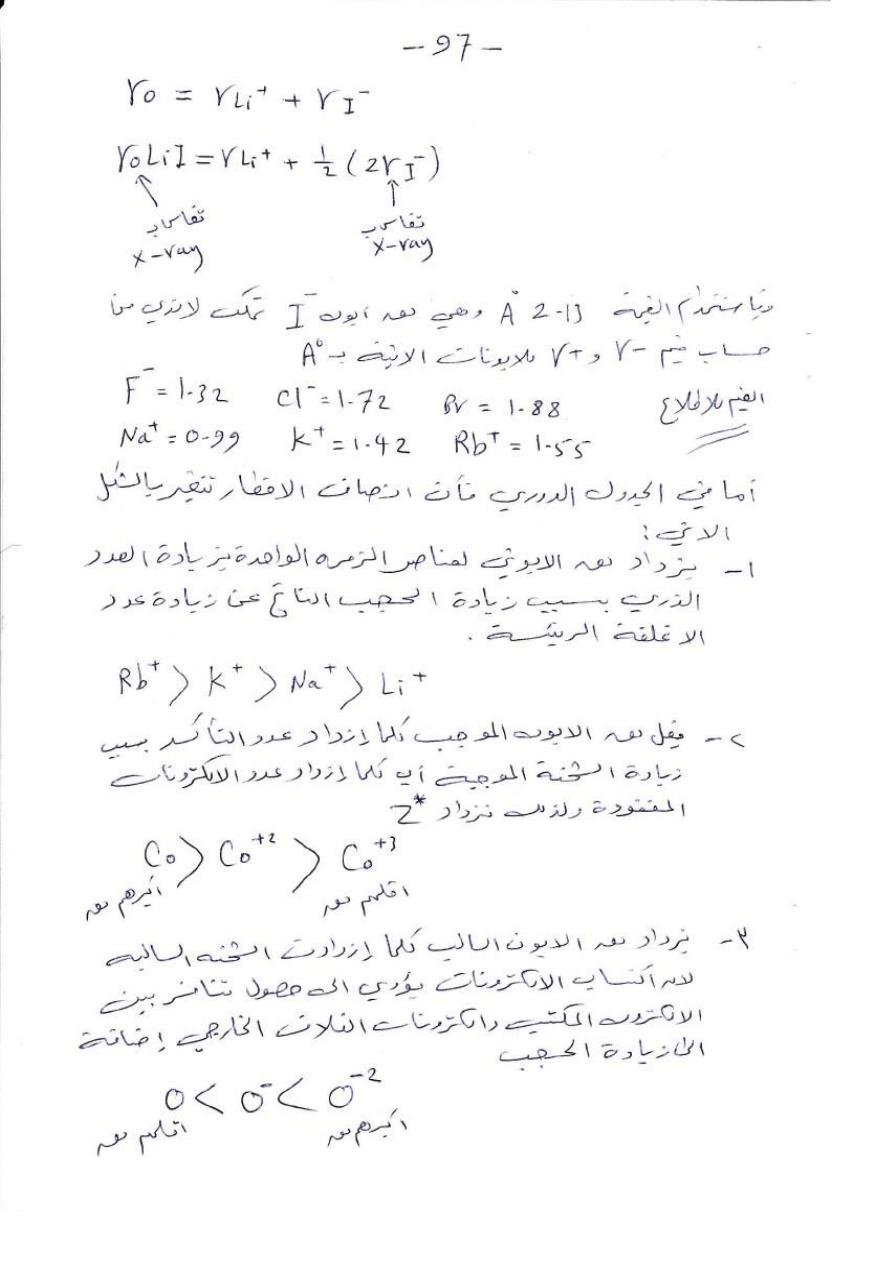 -97-
r₀ = rLi⁺ + rI⁻
r₀LiI = rLi⁺ + ½ (2rI⁻)
تقاس بـ تقاس بـ
x-ray x-ray
وباستخدام القيمة 2.13 A° وهي نق ايون I⁻ تمكن لاندي من
حساب قيم r- و r+ للايونات الاتية بـ A°
F⁻ = 1.32 Cl⁻ = 1.72 Br = 1.88 القيم للاطلاع
Na⁺ = 0.99 K⁺ = 1.42 Rb⁺ = 1.55
أما في الجدول الدوري فأن انصاف الاقطار تتغير بالشكل
الاتي:
١- يزداد نق الايوني لعناصر الزمره الواحدة بزيادة العدد
الذري بسبب زيادة الحجب الناتج عن زيادة عدد
الاغلفة الرئيسة.
Rb⁺ > K⁺ > Na⁺ > Li⁺
٢- يقل نق الايون الموجب كلما إزداد عدد التأكسد بسبب
زيادة الشحنة الموجبة أي كلما إزداد عدد الالكترونات
المفقودة ولذلك تزداد Z*
Co > Co⁺² > Co⁺³
اكبرهم نق اقلهم نق
٣- يزداد نق الايون السالب كلما إزدادت الشحنه السالبه
لان أكتساب الالكترونات يؤدي الى حصول تنافر بين
الالكترون المكتسب والكترونات الغلاف الخارجي إضافة
الى زيادة الحجب
O < O⁻ < O⁻²
اقلهم نق اكبرهم نق